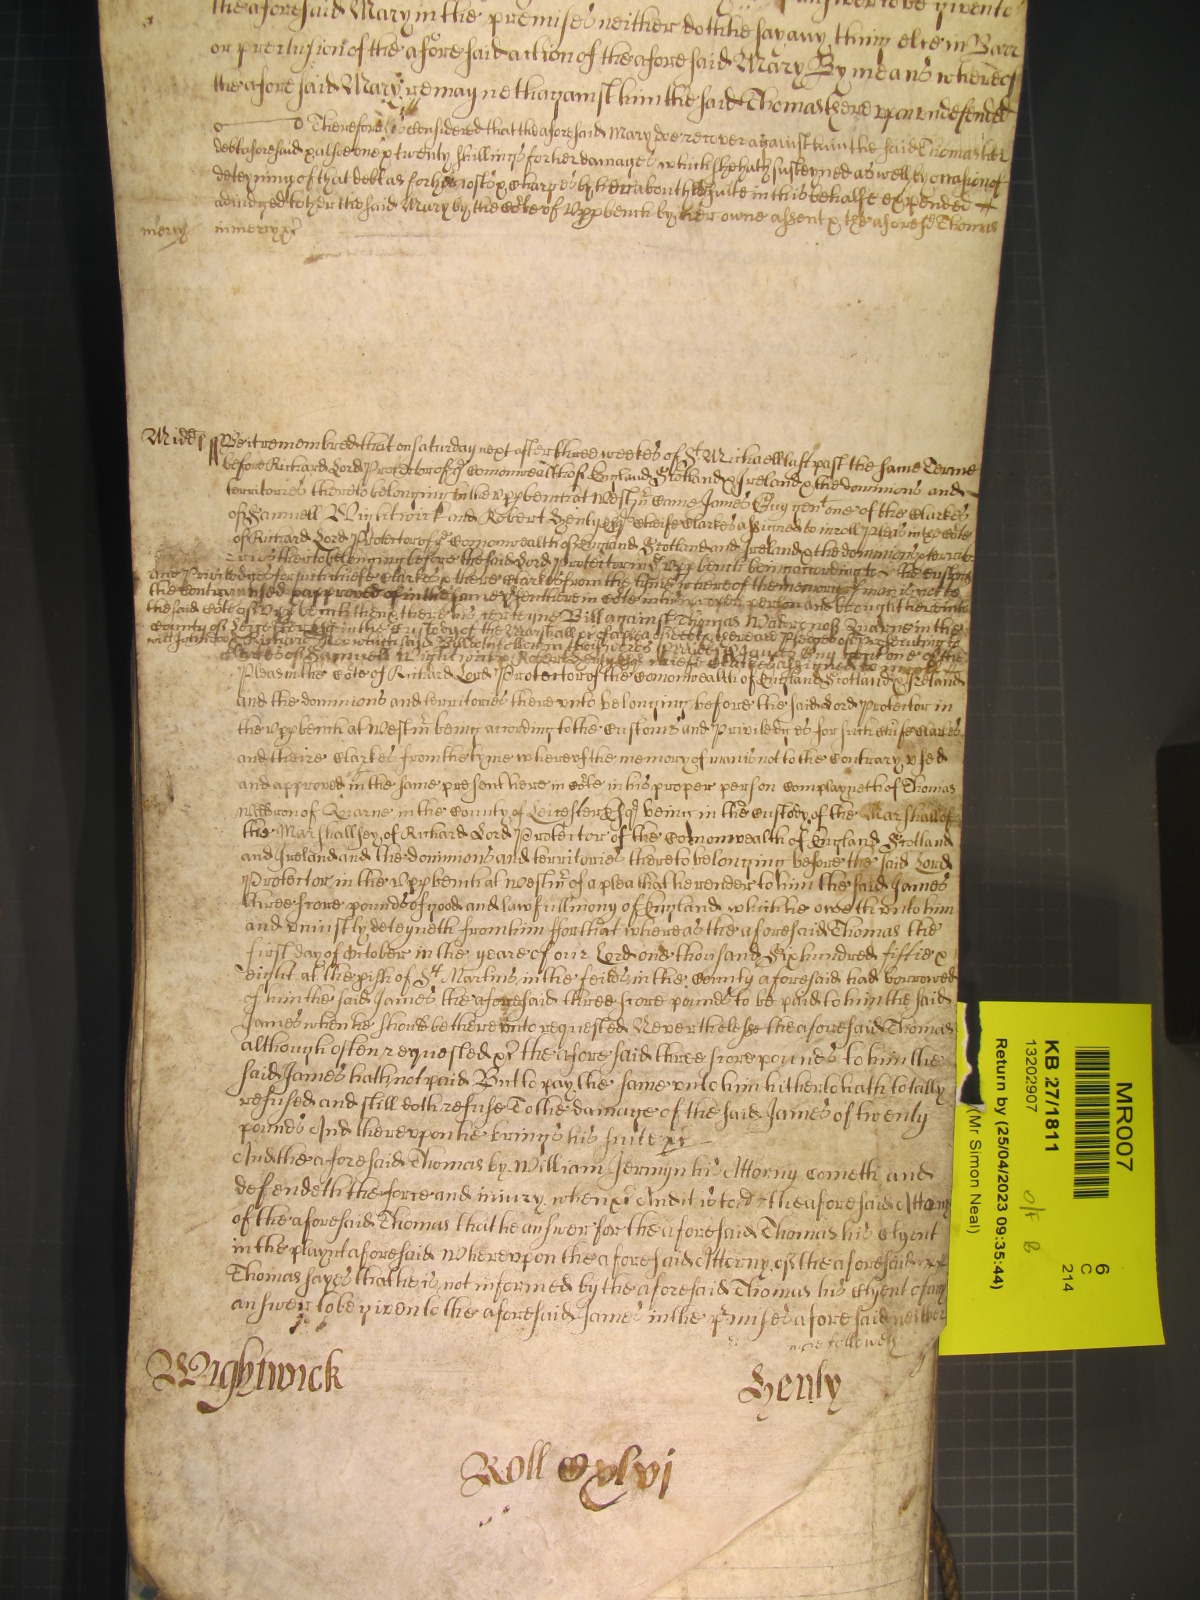 the aforesaid Mary in the premises neither doth he say any thing else in Barr
or preclusion of the aforesaid action of the aforesaid Mary By meanes whereof
the aforesaid Mary remayneth against him the said Thomas thereupon undefended
Therefore it is considered that the aforesaid Mary doe recover against him the said Thomas her
debt aforesaid & alsoe one & twenty shillings for her damages which shee hath susteyned as well by occasion of
deteyning of that debt as for her costs & charges by her about her suite in this behalfe expended
adiudged to her the said Mary by the Cote of Uppbench by her owne assent & the aforesd Thomas
mercy in mercy &c
Midd ss Be it remembred that on Saturday next after three weekes of St Michaell last past the same Terme
before Richard Lord Protector of ye Comonwealth of England Scotland & Ireland & the dominions and
territories thereto belonging in the Uppbench at Westmr Came James Guy gent one of the Clarkes
of Samuell Wightwick and Robert Henly Esqs Cheife Clarkes assigned to inroll Pleas in the Cote
of Richard Lord Protector of ye Comonwealth of England Scotland and Ireland & the dominions & territories
thereto belonging before the said Lord Protector in ye Uppbench being according to the Customs
and Priviledges for such cheife Clarkes & there Clarkes from the tyme whereof the memory of man is not to
the Contrary used & approved of in the same present here in Cote in his proper person and brought here into
the said Cote of Uppbench then & there his certeyne Bill against Thomas Quarne in the
County of Leicester in the Custody of the Marshall &c of a plea of debt & there are Pledges of Prosecuting to
witt John Doe & Richard Roe which said Bill followeth in these words James Guy gent one of the
Clarkes of Samuell Wightwick & Robert Henly Esqs cheife Clarkes assigned to inroll
Pleas in the Cote of Richard Lord Protector of the Comonwealth of England Scotland & Ireland
and the dominions and territories thereunto belonging before the said Lord Protector in
the Uppbench at Westmr being according to the Customs and Priviledges for such cheife Clarkes
and theire Clarkes from the tyme whereof the memory of man is not to the Contrary used
and approved in the same present here in Cote in his proper person Complayneth of Thomas
of Quarne in the County of Leicester Esqr being in the Custody of the Marshall of
the Marshallsey of Richard Lord Protector of the Comonwealth of England Scotland
and Ireland and the dominions and territories thereto belonging before the said Lord
Protector in the Uppbench at Westmr of a plea that he render to him the said James
three score pounds of good and lawfull mony of England which he oweth unto him
and uniustly deteyneth from him ffor that whereas the aforesaid Thomas the
first day of October in the yeare of our Lord one thousand Six hundred fiftie &
eight at the pish of St Martins in the feilds in the County aforesaid had borrowed
of him the said James the aforesaid three score pounds to be paid to him the said
James when he should be thereunto requested Neverthelesse the aforesaid Thomas
although often requested &c the aforesaid three score pounds to him the
said James hath not paid But to pay the same unto him hitherto hath totally
refused and still doth refuse To the damage of the said James of twenty
pounds And thereupon he brings his suite &c
And the aforesaid Thomas by William Jermyn his Attorny cometh and
defendeth the force and iniury when &c And it is told the aforesaid Attorny
of the aforesaid Thomas that he answer for the aforesaid Thomas his Clyent
in the playnt aforesaid Whereupon the aforesaid Attorny of the aforesaid
Thomas sayes that he is not informed by the aforesaid Thomas his Clyent of any
answer to be given to the aforesaid James in the pmises aforesaid neither
more followeth
Wightwick Henly
Roll Cxlvj
MR007
6
C
214
KB 27/1811
13202907
Return by (25/04/2023 09:35:44)
(Mr Simon Neal)